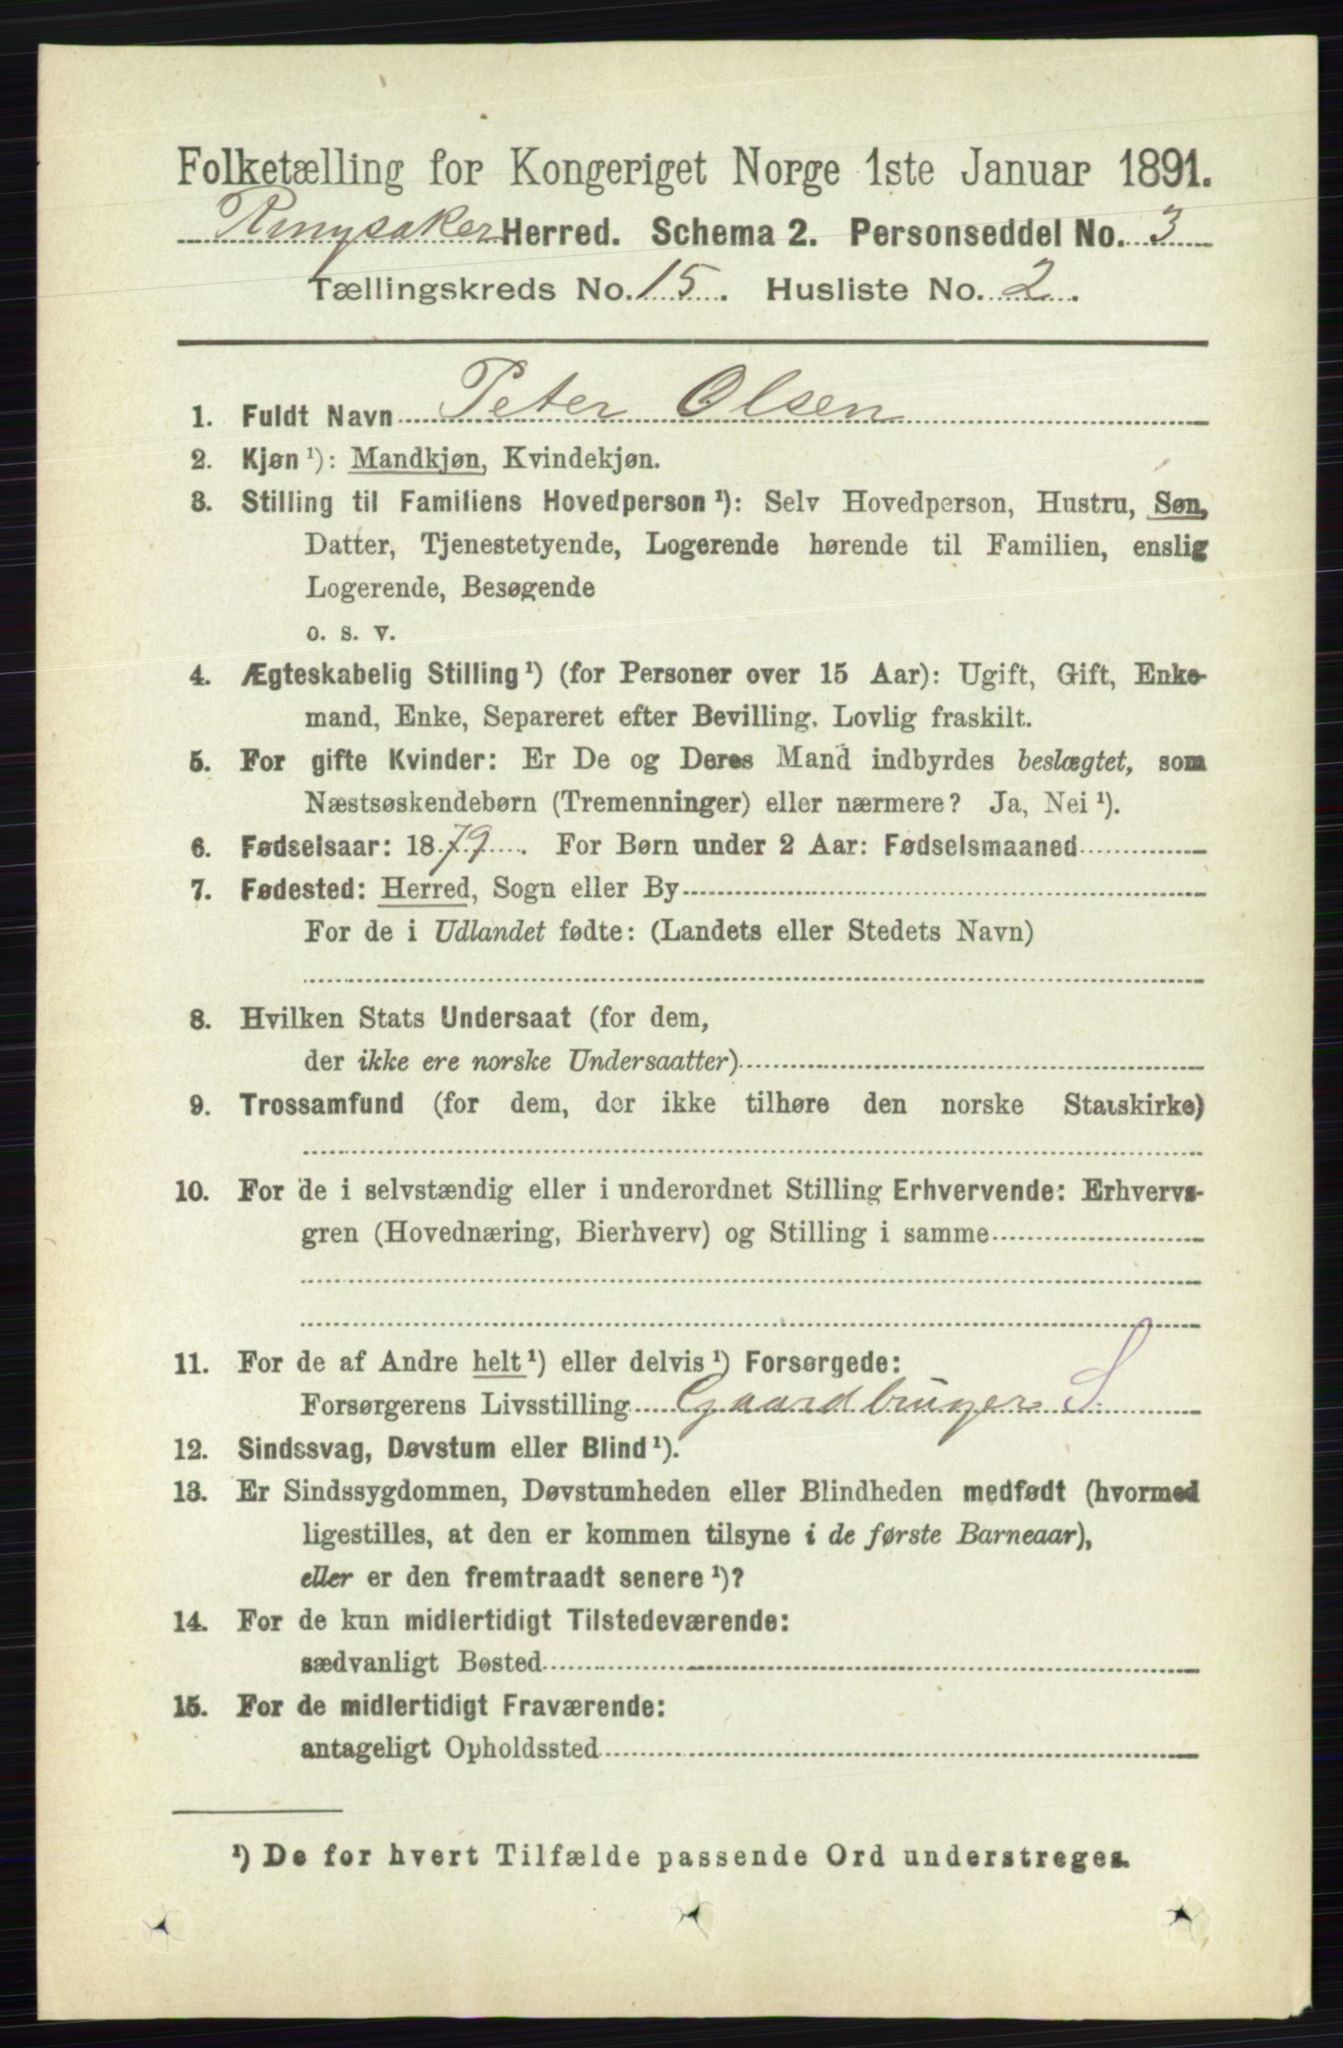 Folketælling for Kongeriget Norge 1ste Januar 1891.
Ringsaker Herred. Schema 2. Personseddel No. 3
Tællingskreds No. 15. Husliste No. 2.
1. Fuldt Navn Peter Olsen
2. Kjøn ¹): Mandkjøn, Kvindekjøn.
3. Stilling til Familiens Hovedperson ¹): Selv Hovedperson, Hustru, Søn,
Datter, Tjenestetyende, Logerende hørende til Familien, enslig
Logerende, Besøgende
o. s. v.
4. Ægteskabelig Stilling ¹) (for Personer over 15 Aar): Ugift, Gift, Enke-
mand, Enke, Separeret efter Bevilling. Lovlig fraskilt.
5. For gifte Kvinder: Er De og Deres Mand indbyrdes beslægtet, som
Næstsøskendebørn (Tremenninger) eller nærmere? Ja, Nei ¹).
6. Fødselsaar: 1879. For Børn under 2 Aar: Fødselsmaaned
7. Fødested: Herred, Sogn eller By
For de i Udlandet fødte: (Landets eller Stedets Navn)
8. Hvilken Stats Undersaat (for dem,
der ikke ere norske Undersaatter)
9. Trossamfund (for dem, der ikke tilhøre den norske Statskirke)
10. For de i selvstændig eller i underordnet Stilling Erhvervende: Erhvervs-
gren (Hovednæring, Bierhverv) og Stilling i samme
11. For de af Andre helt ¹) eller delvis ¹) Forsørgede:
Forsørgerens Livsstilling Gaardbruger S
12. Sindssvag, Døvstum eller Blind ¹).
13. Er Sindssygdommen, Døvstumheden eller Blindheden medfødt (hvormed
ligestilles, at den er kommen tilsyne i de første Barneaar),
eller er den fremtraadt senere ¹)?
14. For de kun midlertidigt Tilstedeværende:
sædvanligt Bosted
15. For de midlertidigt Fraværende:
antageligt Opholdssted
¹) De for hvert Tilfælde passende Ord understreges.